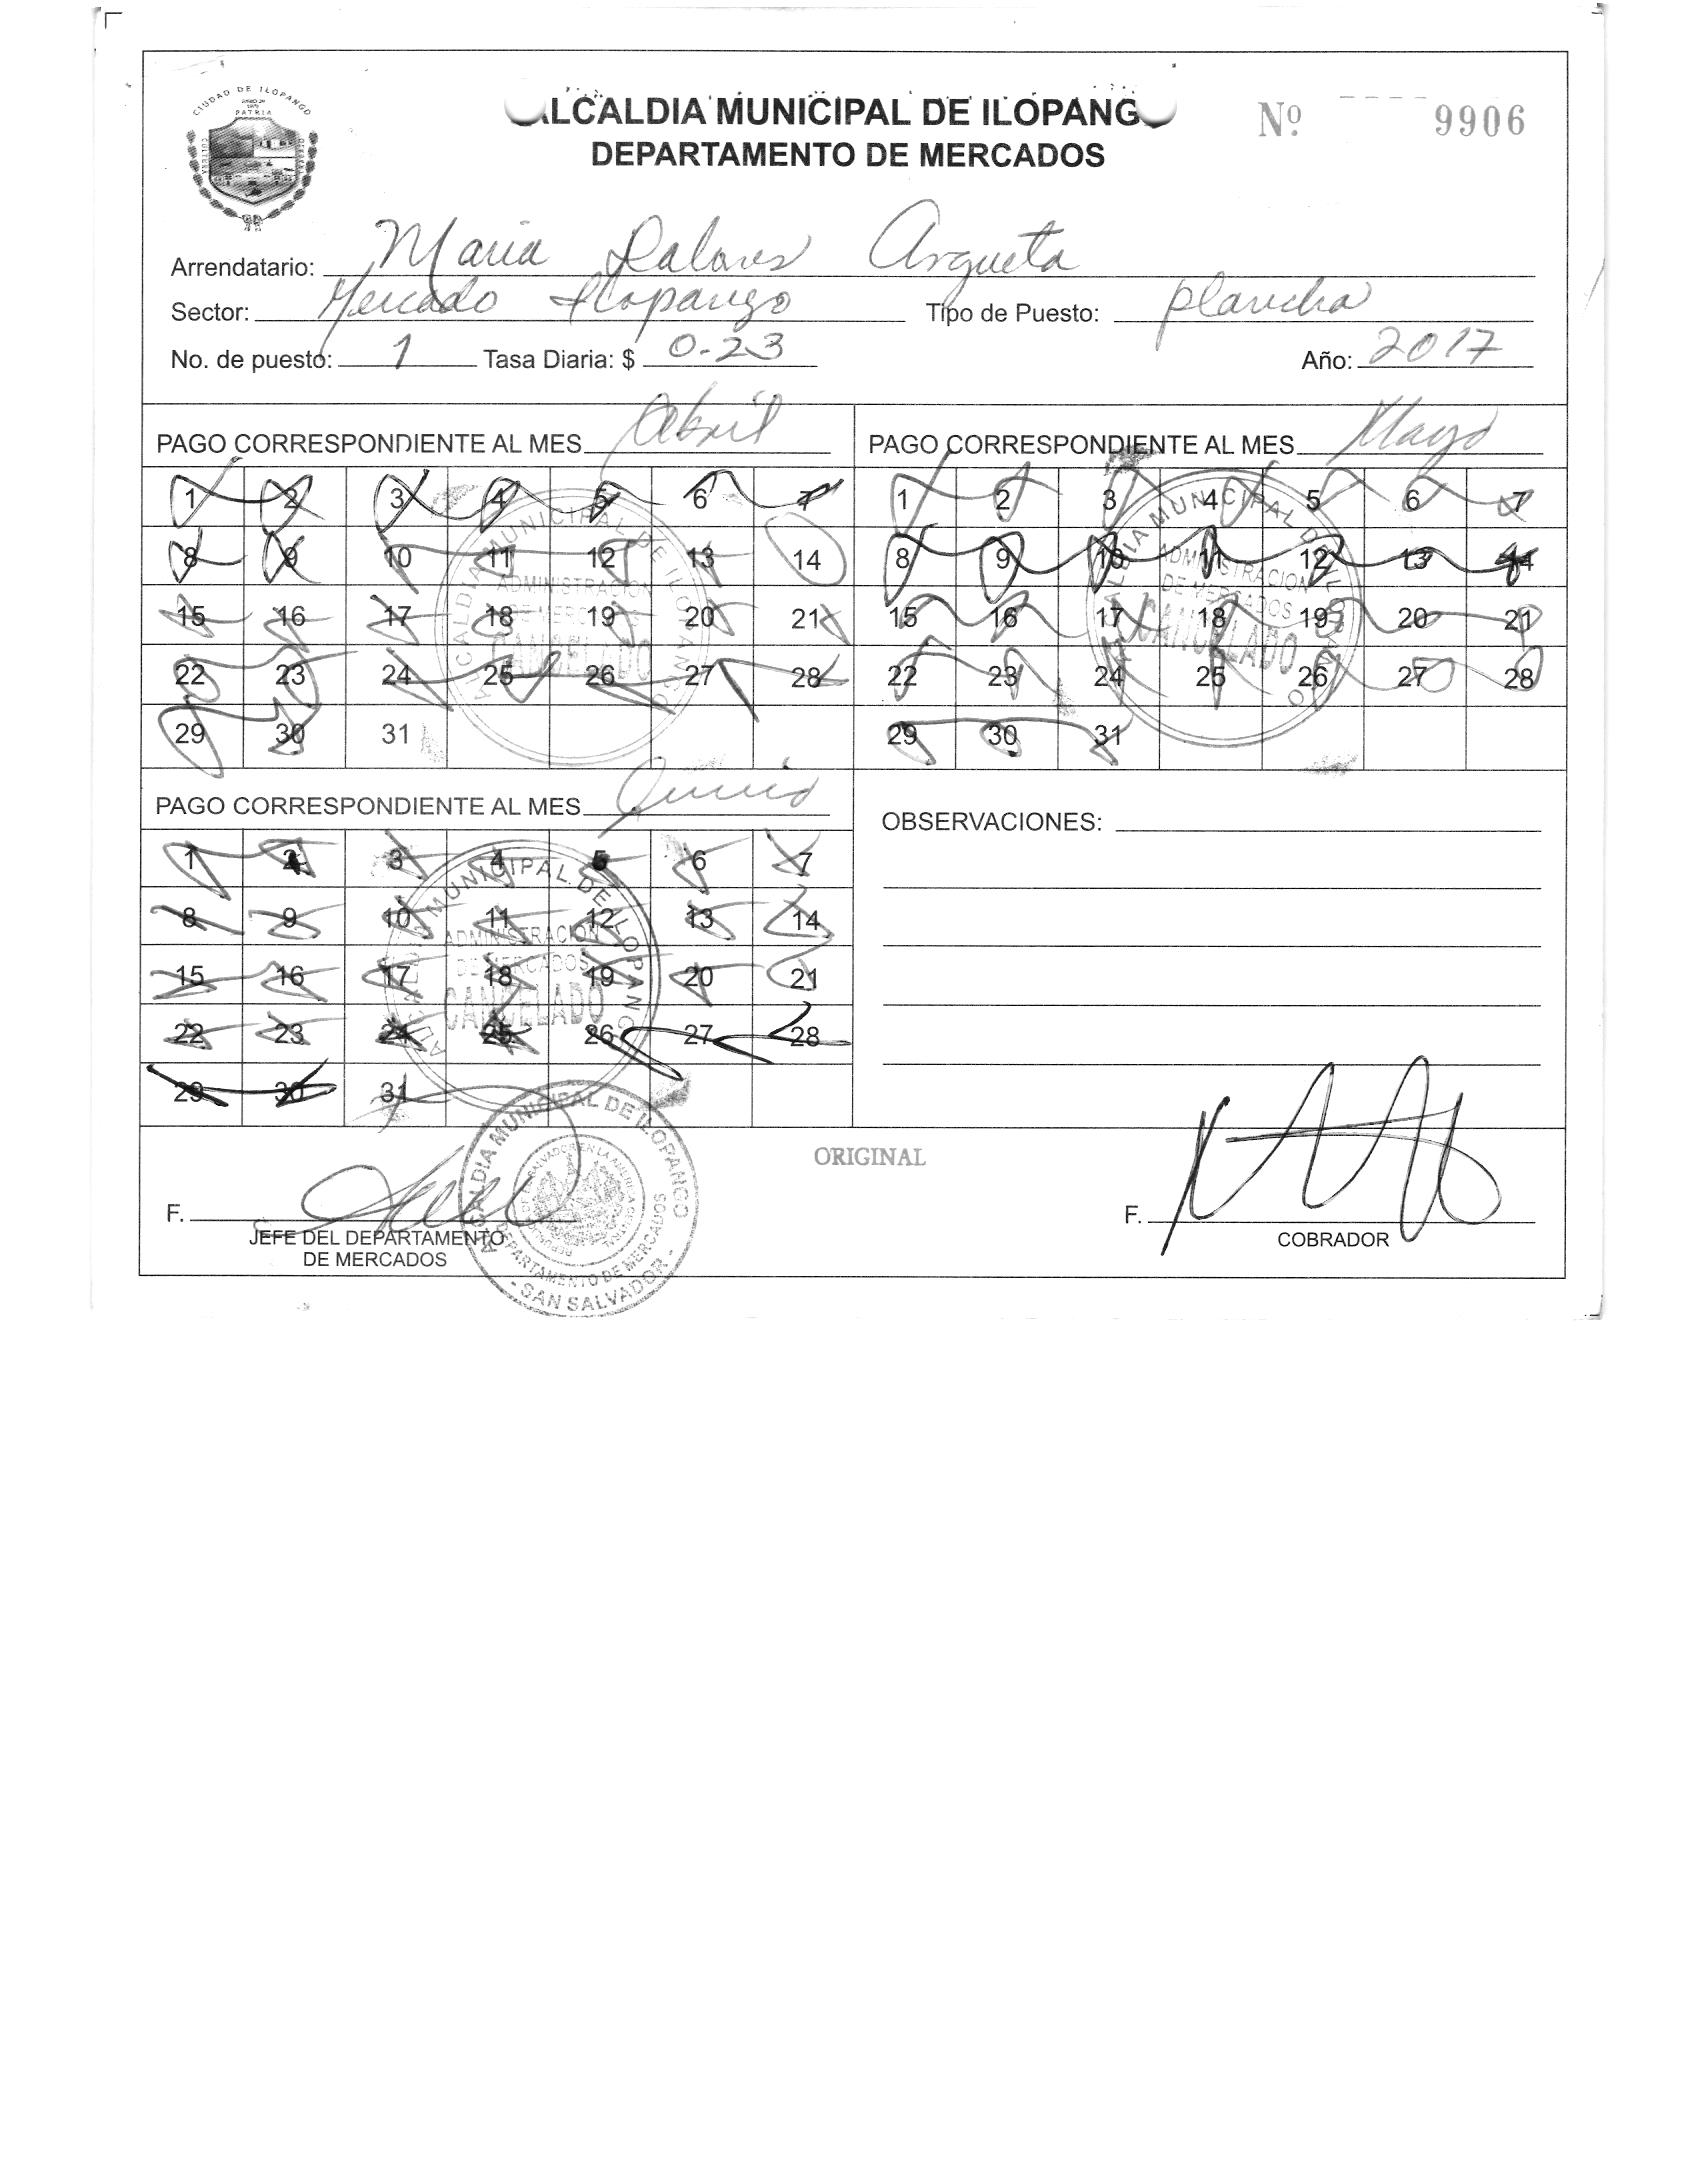 CIUDAD DE ILOPANGO
ALCALDIA MUNICIPAL DE ILOPANGO
Nº. 9906
DEPARTAMENTO DE MERCADOS
Arrendatario: Maria Dolores Argueta
Sector: Mercado Ilopango Tipo de Puesto: plancha
No. de puesto: 1 Tasa Diaria: $ 0.23 Año: 2017
PAGO CORRESPONDIENTE AL MES Abril
1 2 3 4 5 6 7
8 9 10 11 12 13 14
15 16 17 18 19 20 21
22 23 24 25 26 27 28
29 30 31
ALCALDIA MUNICIPAL DE ILOPANGO
ADMINISTRACION
DE MERCADOS
CANCELADO
PAGO CORRESPONDIENTE AL MES Mayo
1 2 3 4 5 6 7
8 9 10 11 12 13 14
15 16 17 18 19 20 21
22 23 24 25 26 27 28
29 30 31
ALCALDIA MUNICIPAL DE ILOPANGO
ADMINISTRACION
DE MERCADOS
CANCELADO
PAGO CORRESPONDIENTE AL MES Junio
1 2 3 4 5 6 7
8 9 10 11 12 13 14
15 16 17 18 19 20 21
22 23 24 25 26 27 28
29 30 31
ALCALDIA MUNICIPAL DE ILOPANGO
ADMINISTRACION
DE MERCADOS
CANCELADO
OBSERVACIONES:
ORIGINAL
F.
JEFE DEL DEPARTAMENTO
DE MERCADOS
ALCALDIA MUNICIPAL DE ILOPANGO
DEPARTAMENTO DE MERCADOS
- SAN SALVADOR -
F.
COBRADOR